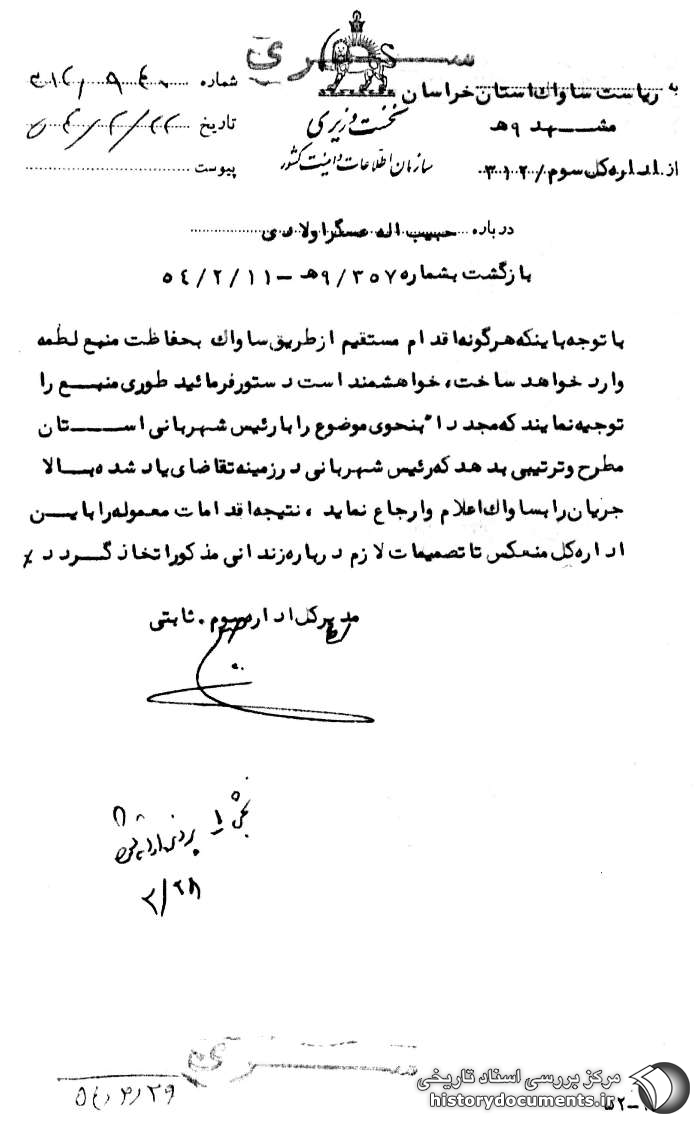 سری
به ریاست ساواک استان خراسان
مشهد ۹ه‍
از اداره کل سوم / ۳۱۲
نخست وزیری
سازمان اطلاعات و امنیت کشور
شماره
تاریخ
پیوست
درباره حبیب اله عسگراولادی
بازگشت بشماره ۳۵۷/۹ه‍ – ۱۱/۲/۵۴
با توجه باینکه هرگونه اقدام مستقیم از طریق ساواک بحفاظت منبع لطمه
وارد خواهد ساخت، خواهشمند است دستور فرمائید طوری منبع را
توجیه نمایند که مجدداً بنحوی موضوع را با رئیس شهربانی استان
مطرح و ترتیبی بدهد که رئیس شهربانی در زمینه تقاضای یاد شده بالا
جریان را بساواک اعلام و ارجاع نماید، نتیجه اقدامات معموله را باین
اداره کل منعکس تا تصمیمات لازم درباره زندانی مذکور اتخاذ گردد٪
مدیرکل اداره سوم. ثابتی
۲/۲۸
سری
مرکز بررسی اسناد تاریخی
historydocuments.ir